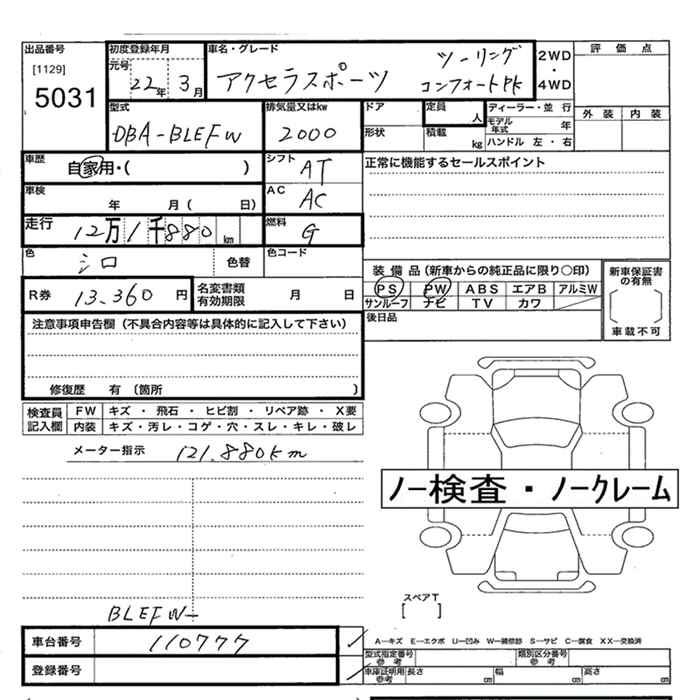 出品番号
[1129]
5031
初度登録年月
元号
22年 3月
車名・グレード
アクセラスポーツ
ツーリング
コンフォートPK
2WD
・
4WD
評価点
外装 内装
型式
DBA-BLEFW
排気量又はkw
2000
ドア
形状
定員
人
積載
kg
ディーラー・並行
モデル年式 年
ハンドル 左・右
車歴
自家用・( )
シフト
AT
正常に機能するセールスポイント
車検
年 月( 日)
AC
AC
走行
12万1千880km
燃料
G
色
シロ
色替
色コード
R券 13,360円
名変書類
有効期限
月 日
装備品(新車からの純正品に限り○印)
PS PW ABS エアB アルミW
サンルーフ ナビ TV カワ
新車保証書
の有無
車載不可
後日品
注意事項申告欄(不具合内容等は具体的に記入して下さい)
修復歴 有 (箇所 )
検査員
記入欄
FW キズ・飛石・ヒビ割・リペア跡・X要
内装 キズ・汚レ・コゲ・穴・スレ・キレ・破レ
メーター指示 121,880km
ノー検査・ノークレーム
スペアT
[ ]
BLEFW-
車台番号 110777
登録番号
A―キズ E―エクボ U―凹み W―補修跡 S―サビ C―腐食 XX―交換済
型式指定番号
参考
類別区分番号
参考
車庫証明用
参考
長さ cm 幅 cm 高さ cm